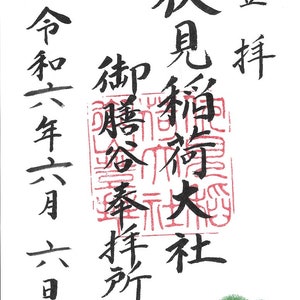 登拝
伏見稲荷大社
御膳谷奉拝所
令和六年六月六日